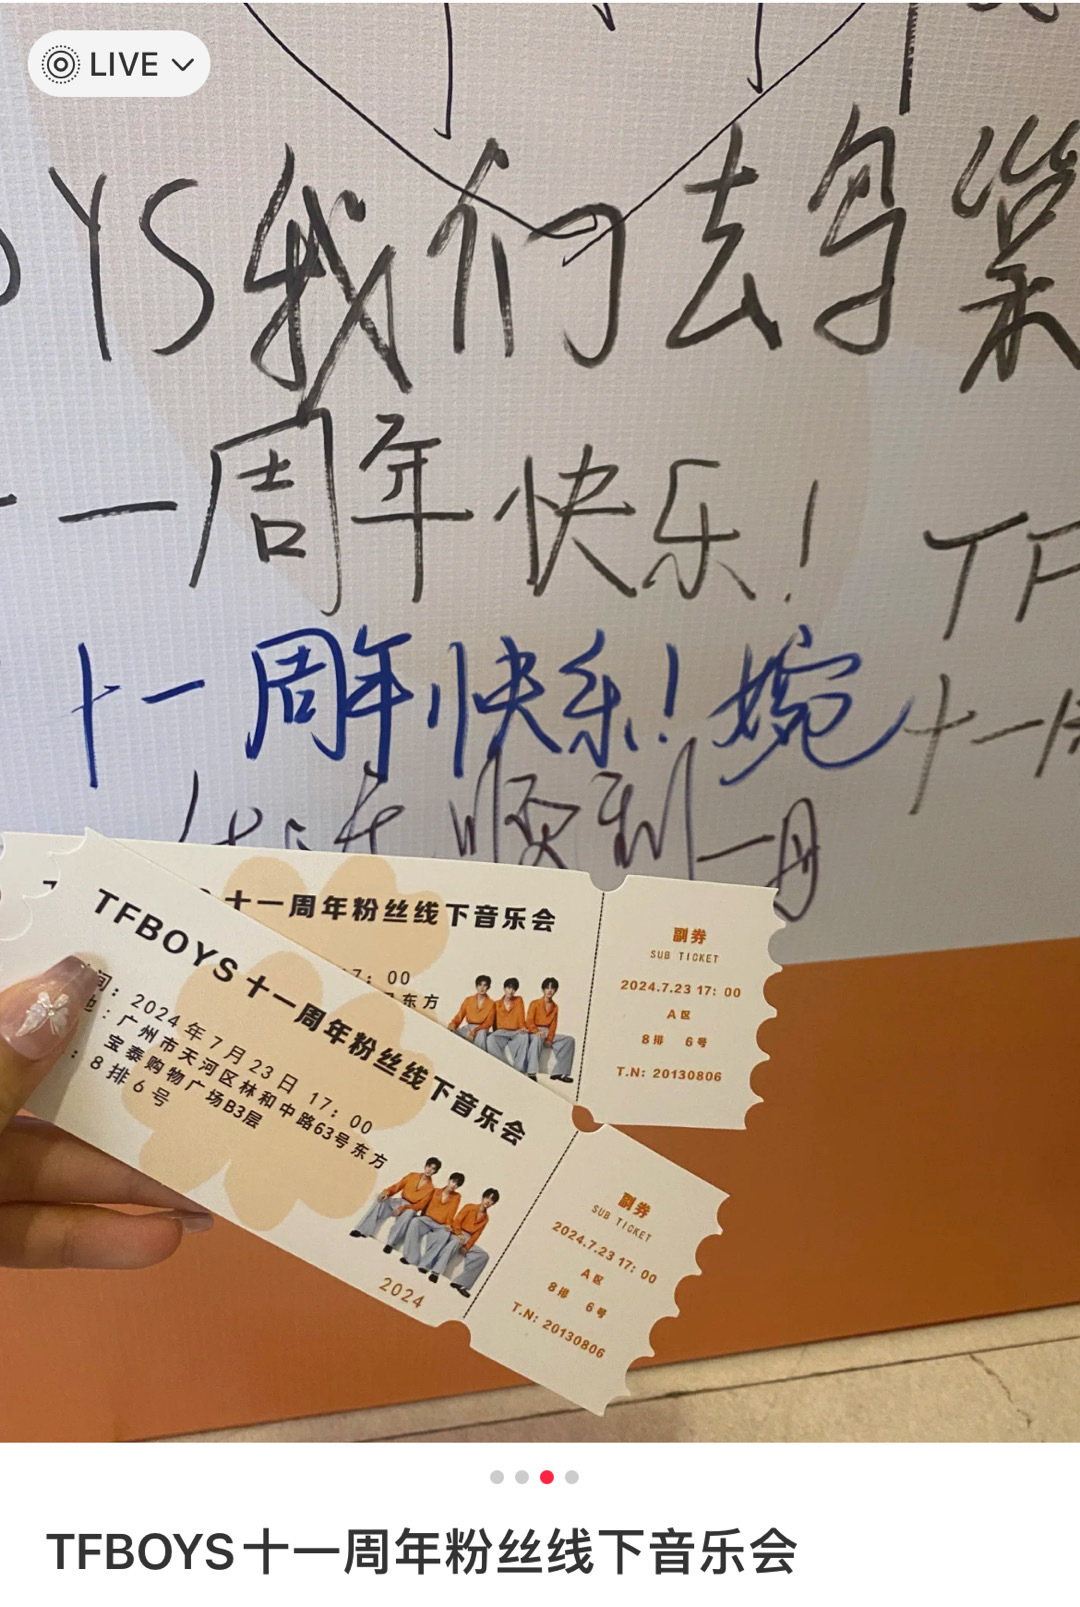 LIVE
YS我们去鸟巢
一周年快乐!
TF
十一周年快乐!婉
十一周
顺利一毋
十一周年粉丝线下音乐会
17: 00
东方
副券
SUB TICKET
2024.7.23 17: 00
A区
8排 6号
T.N: 20130806
TFBOYS十一周年粉丝线下音乐会
间: 2024年7月23日 17: 00
地: 广州市天河区林和中路63号东方
宝泰购物广场B3层
: 8排6号
2024
副券
SUB TICKET
2024.7.23 17: 00
A区
8排 6号
T.N: 20130806
TFBOYS十一周年粉丝线下音乐会